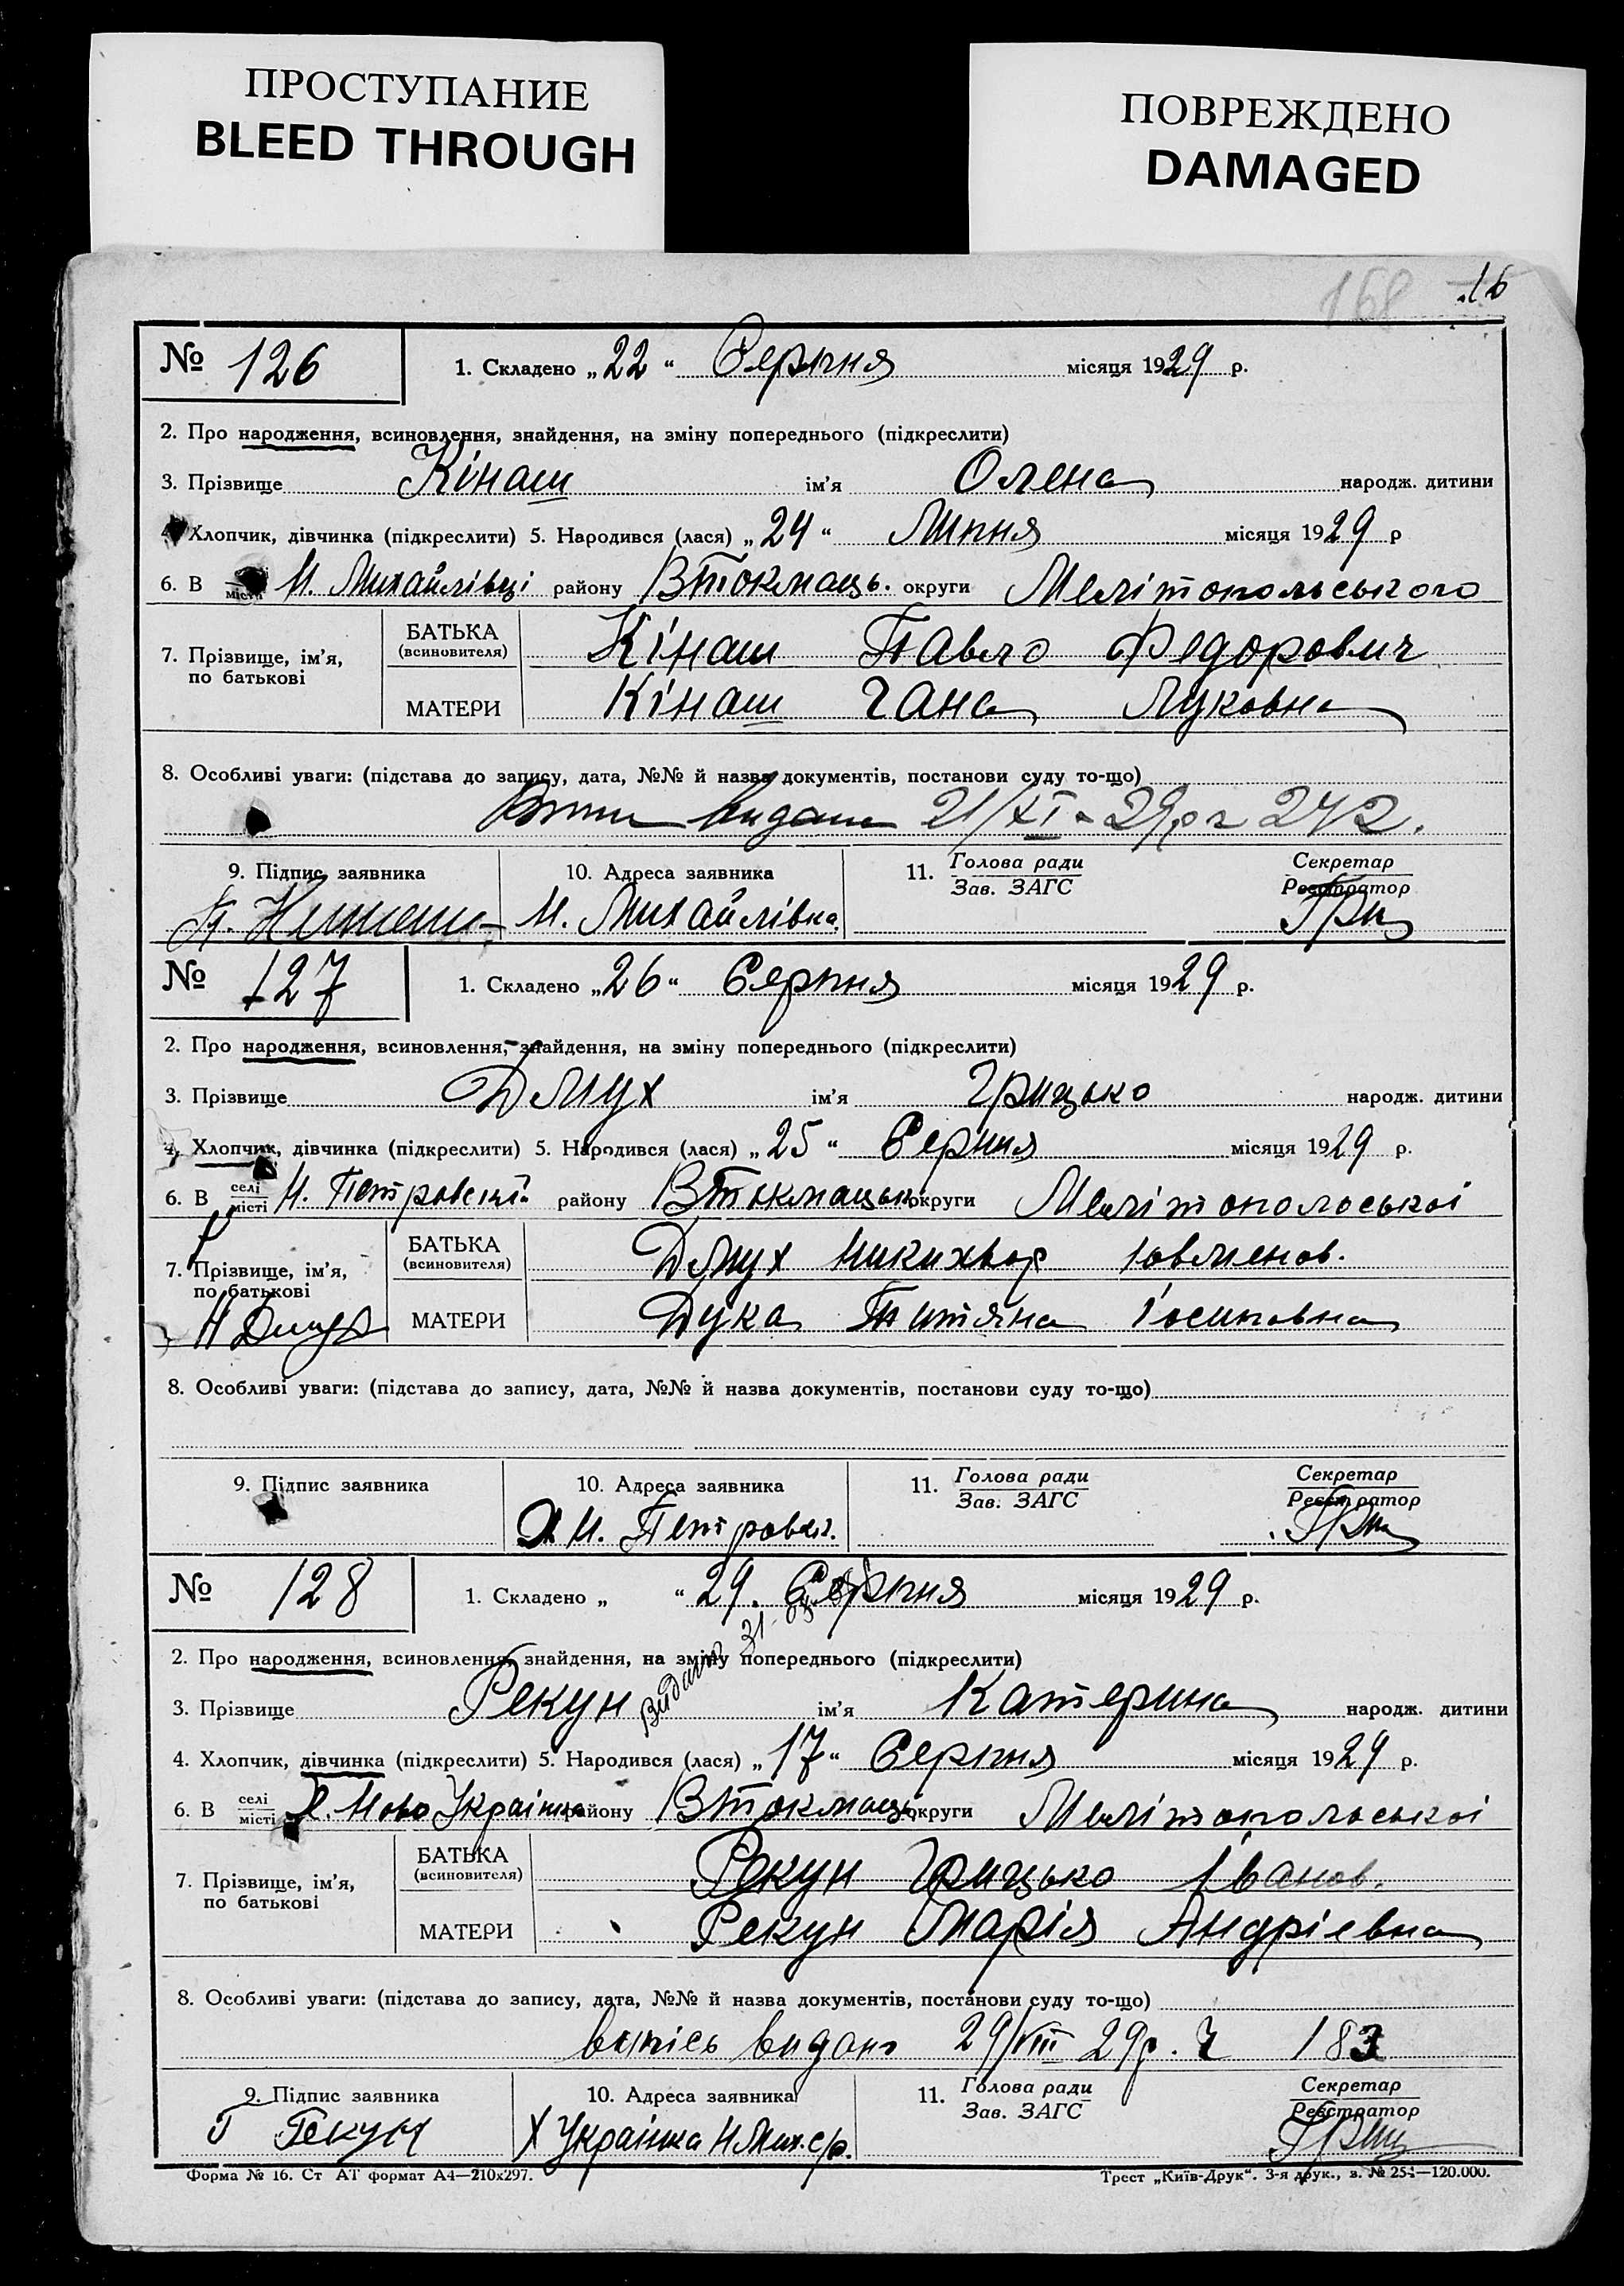 ПРОСТУПАНИЕ
BLEED THROUGH
ПОВРЕЖДЕНО
DAMAGED
168 16
№ 126 1. Складено „22“ Серпня місяця 1929 р.
2. Про народження, всиновлення, знайдення, на зміну попереднього (підкреслити)
3. Прізвище Кінаш ім’я Олена народж. дитини
Хлопчик, дівчинка (підкреслити) 5. Народився (лася) „24“ Липня місяця 1929 р
6. В місті Н. Михайлівці району ВТокмаць. округи Мелітопольського
7. Прізвище, ім’я, по батькові
БАТЬКА (всиновителя) Кінаш Павло Федорович
МАТЕРИ Кінаш Гана Луковна
8. Особливі уваги: (підстава до запису, дата, №№ й назва документів, постанови суду то-що)
видана 21/XI-29р 242.
9. Підпис заявника 10. Адреса заявника 11. Голова ради Зав. ЗАГС Секретар Реєстратор
Н. Михайлівка.
№ 127 1. Складено „26“ Серпня місяця 1929 р.
2. Про народження, всиновлення, знайдення, на зміну попереднього (підкреслити)
3. Прізвище Дмух ім’я Грицько народж. дитини
4. Хлопчик, дівчинка (підкреслити) 5. Народився (лася) „25“ Серпня місяця 1929 р.
6. В селі місті Н. району ВТокмацьк. округи Мелітопольської
7. Прізвище, ім’я, по батькові
БАТЬКА (всиновителя) Дмух Никихвор
МАТЕРИ Дука Титяна Іосиповна
Н Дмух
8. Особливі уваги: (підстава до запису, дата, №№ й назва документів, постанови суду то-що)
9. Підпис заявника 10. Адреса заявника 11. Голова ради Зав. ЗАГС Секретар Реєстратор
Н.
№ 128 1. Складено „ “ 29. Серпня місяця 1929 р.
2. Про народження, всиновлення, знайдення, на зміну попереднього (підкреслити)
3. Прізвище Рекун ім’я Катерина народж. дитини
4. Хлопчик, дівчинка (підкреслити) 5. Народився (лася) „17“ Серпня місяця 1929 р.
6. В селі місті Х. Ново Українка району ВТокмацьк округи Мелітопольської
7. Прізвище, ім’я, по батькові
БАТЬКА (всиновителя) Рекун Грицько Іванов.
МАТЕРИ Рекун Марія Андрієвна
8. Особливі уваги: (підстава до запису, дата, №№ й назва документів, постанови суду то-що)
випісь видано 29/VIII 29р. Ч 183
9. Підпис заявника 10. Адреса заявника 11. Голова ради Зав. ЗАГС Секретар Реєстратор
Г Рекун Х Українка Н Мих. с/р.
Форма № 16. Ст АТ формат А4—210х297. Трест „Київ-Друк“. 3-я друк., з. № 254—120.000.